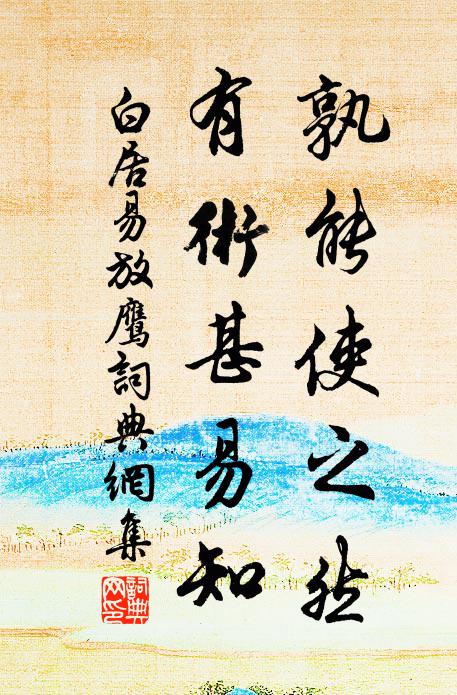 孰能使之然
有術甚易知
白居易放鷹詞典網集
詞典網印